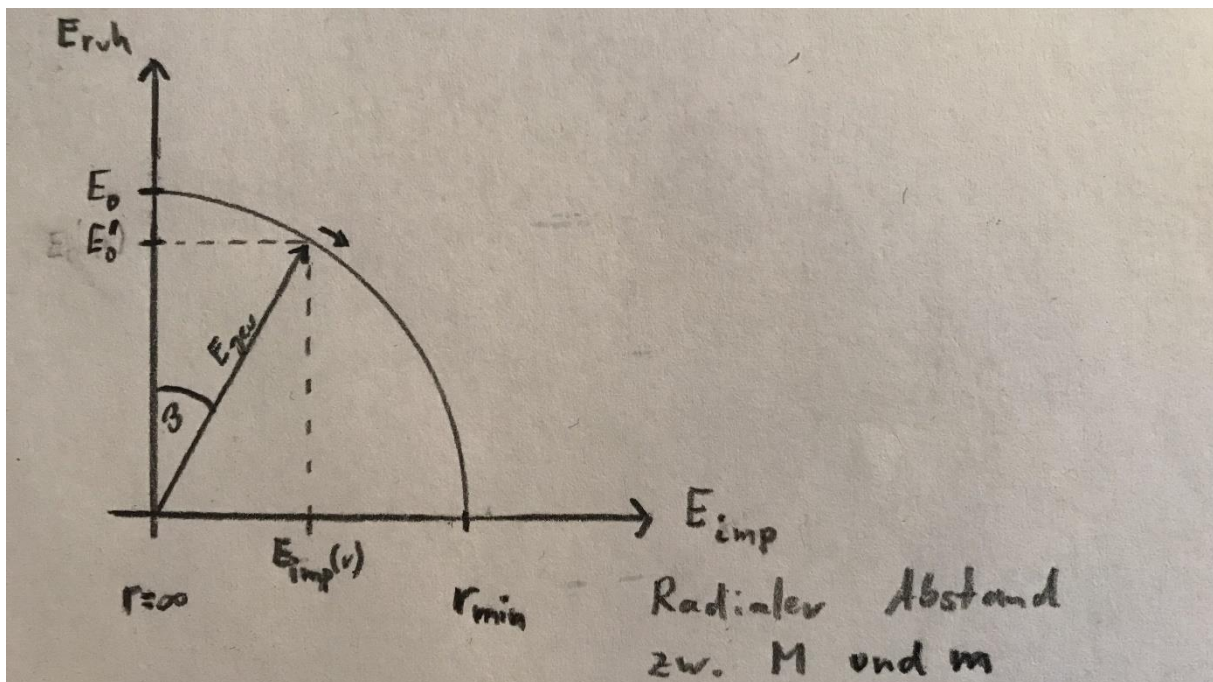 E_ruh
E_0
E_0"
E_ges
β
E_imp
E_imp(r)
r=∞
r_min
Radialer Abstand
zw. M und m